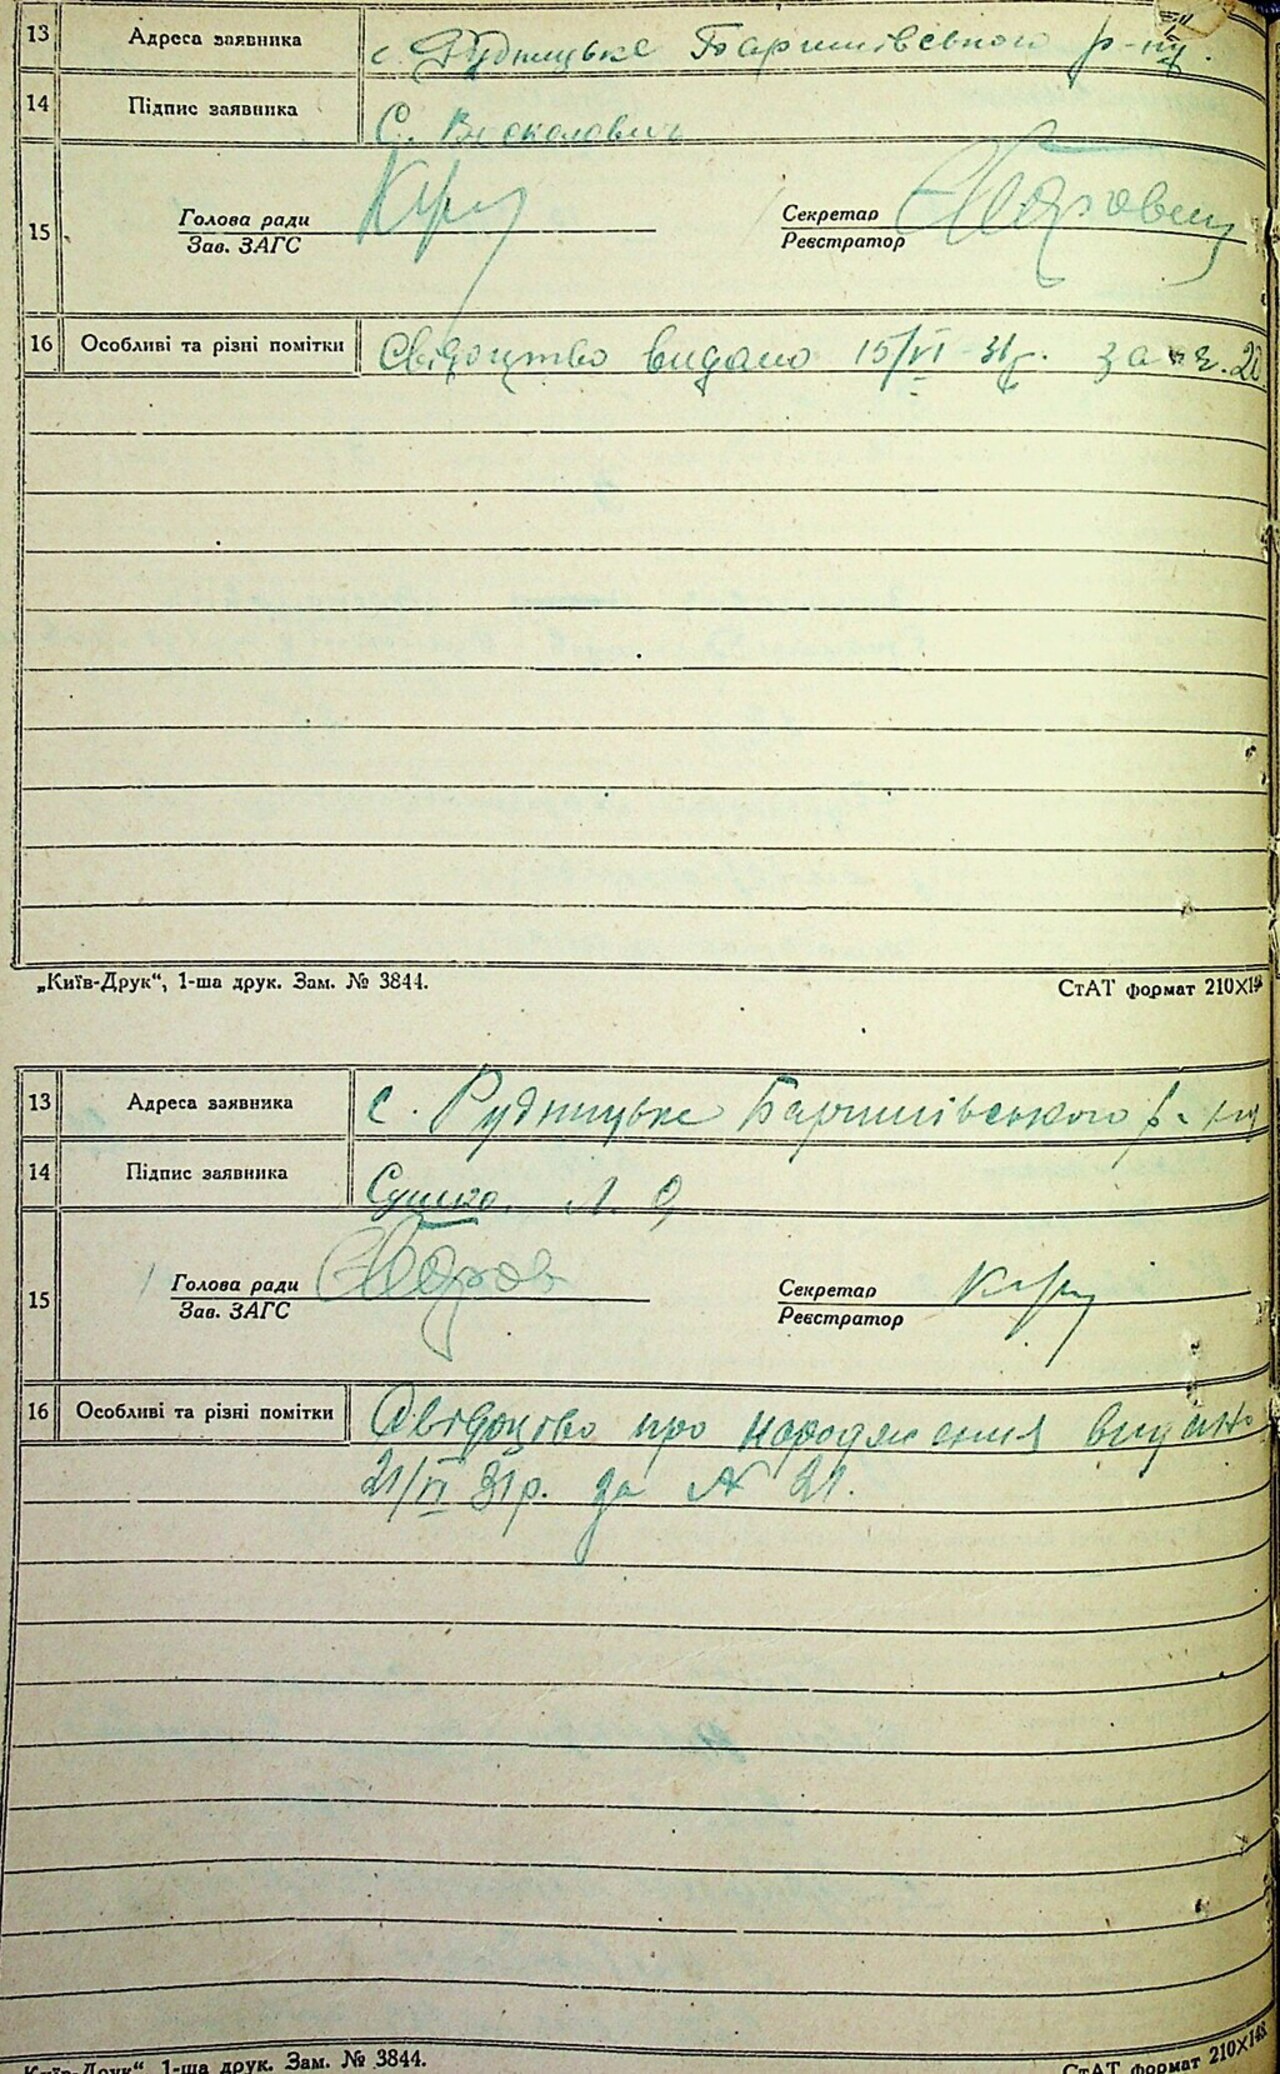 13 Адреса заявника с. Рудницьке Баришівського р-ну.
14 Підпис заявника С.
15 Голова ради Секретар
Зав. ЗАГС Реєстратор
16 Особливі та різні помітки Свідоцтво видано 15/VI-31р. за 20
„Київ-Друк“, 1-ша друк. Зам. № 3844. СтАТ формат 210X148
13 Адреса заявника с. Рудницьке Баришівського р-ну
14 Підпис заявника Сушко. Л. О
15 Голова ради Секретар
Зав. ЗАГС Реєстратор
16 Особливі та різні помітки Свідоцтво про народження видано
21/VI 31р. за № 21.
„Київ-Друк“, 1-ша друк. Зам. № 3844. СтАТ формат 210X148